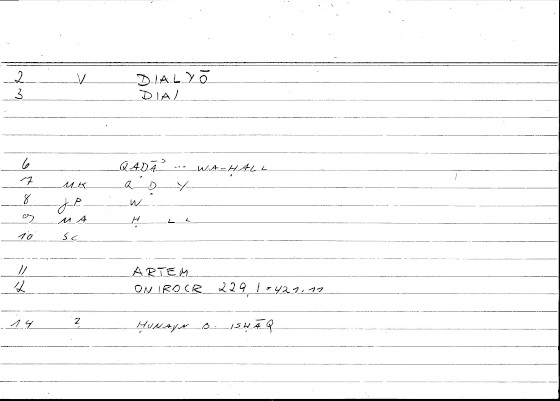 2 V DIALYŌ
3 DIAI
6 QAḌĀʾ ... WA-ḤALL
7 MK Q Ḍ Y
8 JP W
9 MA Ḥ L L
10 SC
11 ARTEM
12 ONIROCR 229,1 * 421.11
14 2 ḤUNAYN B. ISḤĀQ